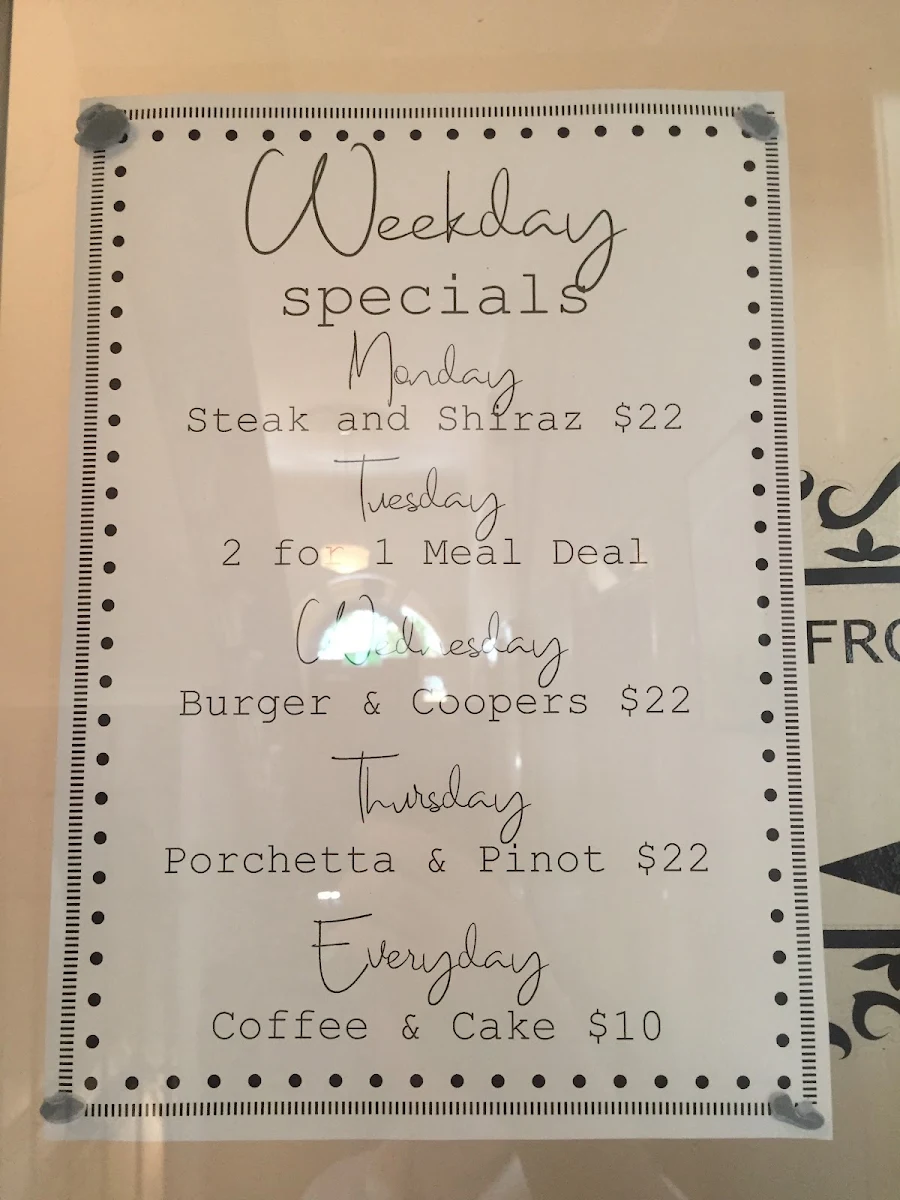 Weekday
specials
Monday
Steak and Shiraz $22
Tuesday
2 for 1 Meal Deal
Wednesday
Burger & Coopers $22
Thursday
Porchetta & Pinot $22
Everyday
Coffee & Cake $10